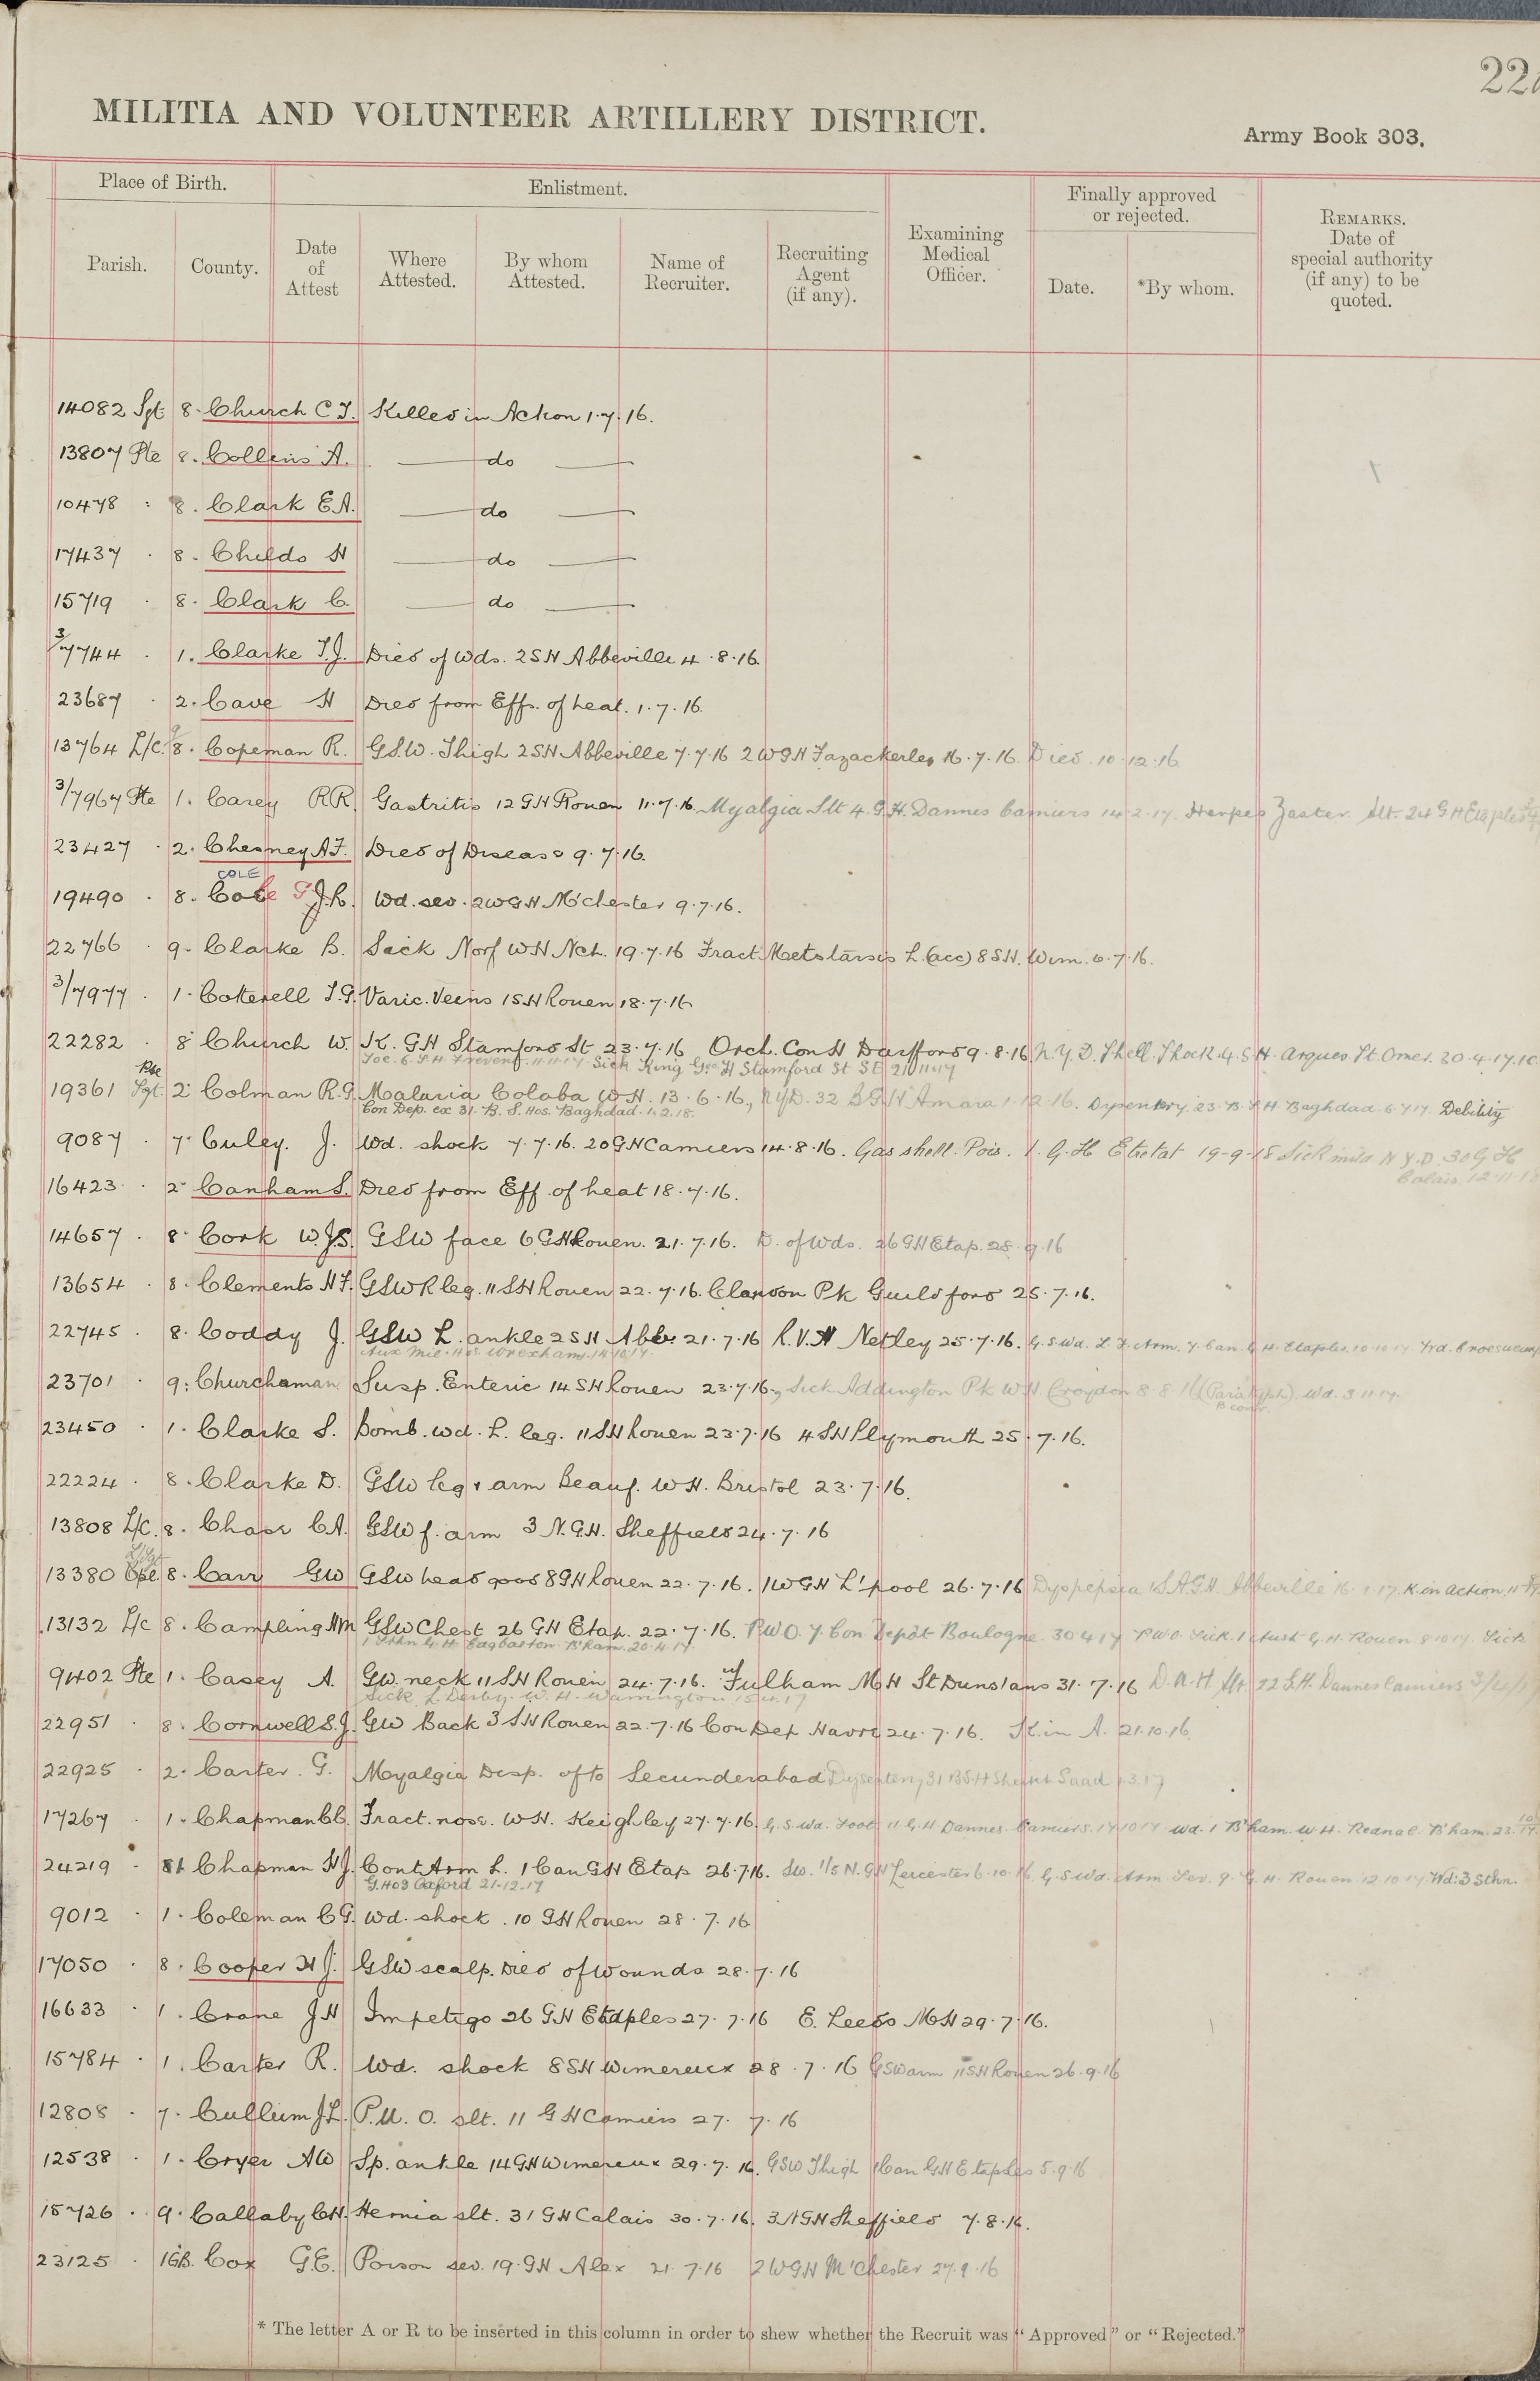 22
MILITIA AND VOLUNTEER ARTILLERY DISTRICT.
Army Book 303.
Place of Birth.
Enlistment.
Finally approved
or rejected.
Parish.
County.
Date
of
Attest
Where
Attested.
By whom
Attested.
Name of
Recruiter.
Recruiting
Agent
(if any).
Examining
Medical
Officer.
Date.
*By whom.
REMARKS.
Date of
special authority
(if any) to be
quoted.
14082 Sgt 8. Church C T. Killed in Action 1.7.16.
13807 Pte 8. Collins A. do
10478 : 8. Clark E A. do
17437 . 8. Childs H do
15719 . 8. Clark C. do
3/7744 . 1. Clarke T.J. Died of Wds. 2 S H Abbeville 4.8.16.
23687 . 2. Cave H Died from Effs. of heat. 1.7.16.
13764 L/C. 8. Copeman R. G.S.W. Thigh 2 S H Abbeville 7.7.16 2 W G H Fazackerley 16.7.16. Died 10.12.16
3/7967 Pte 1. Carey R R. Gastritis 12 G H Rouen 11.7.16. Myalgia Slt 4. G.H. Dannes Camiers 14.2.17. Herpes Zoster. Slt. 24 G H Etaples
23427 . 2. Chesney A F. Died of Disease 9.7.16.
COLE
19490 . 8. Cole G J. R. Wd. sev. 2 W G H M'chester 9.7.16.
22766 . 9. Clarke B. Sick Norf W H Nch. 19.7.16 Fract. Metatarsis L. (acc) 8 S H. Wim. 6.7.16.
3/7977 . 1. Cotterell T.G. Varic. Veins 1 S H Rouen 18.7.16
22282 . 8 Church W. K. G H Stamford St 23.7.16 Orch. Con H Dartford 9.8.16. N.Y.D. Shell Shock 4. S H. Arques. St. Omer. 30.4.17.
Sick King Geo H Stamford St SE 21 11 17
Pte
19361 Sgt. 2. Colman R.G. Malaria Colaba W H. 13.6.16., N Y D. 32 B G H Amara 1.12.16. Dysentery. 23 B. S H Baghdad 6 7 17 Debility
Con Dep. ex 31. B. S. Hos. Baghdad. 1.2.18.
9087 . 7. Culey. J. Wd. shock 7.7.16. 20 G H Camiers 14.8.16. Gas shell. Pois. 1. G. H Etretat 19-9-18 Sick mild N.Y.D. 30 G H
Calais. 12.11.18
16423 . 2. Canham S. Died from Eff. of heat 18.7.16.
14657 . 8. Cork W.J.S. G S W face 6 G H Rouen. 21.7.16. D. of Wds. 26 G H Etap. 28.9.16
13654 . 8. Clements H F. G S W R leg. 11 S H Rouen 22.7.16. Clandon Pk Guildford 25.7.16.
22745 . 8. Coddy J. G S W L. ankle 2 S H Abb. 21.7.16 R.V.H Netley 25.7.16. G.S. Wd. L. F. Arm. 7. Can. G H. Etaples. 10.10.17
Aux Mil. Hos. Wrexham. 14.10.17.
23701 . 9. Churchaman Susp. Enteric 14 S H Rouen 23.7.16., Sick Addington Pk W H Croydon 8 8 16 (Paratyph). Wd. 3 11 17.
23450 . 1. Clarke S. Bomb. Wd. L. leg. 11 S H Rouen 23.7.16 4 S H Plymouth 25.7.16.
22224 . 8. Clarke D. G S W leg & arm Beauf. W H. Bristol 23.7.16.
13808 L/C. 8. Chase C A. G S W f. arm 3 N. G. H. Sheffield 24.7.16
13380 Cpl. 8. Carr G W G S W head 8 G H Rouen 22.7.16. 1 W G H L'pool 26.7.16 Dyspepsia S.A G H Abbeville 16.1.17. K. in action.
13132 L/c 8. Campling H M G S W Chest 26 G H Etap. 22.7.16. P.U.O. 7. Con Depôt Boulogne 30 4 17 P.U.O. Sick. 1 Aust. G. H. Rouen. 8 10 17. Sick
1 Sthn G. H Edgbaston. B'ham. 20.4.17
9402 Pte 1. Casey A. G W. neck 11 S H Rouen 24.7.16. Fulham M H St Dunstans 31.7.16 D. A. H Slt 22 G.H. Dannes Camiers
Sick L Derby. W. H. Warrington 15.4.17
22951 . 8. Cornwell S.J. G W Back 3 S H Rouen 22.7.16 Con Dep Havre 24.7.16. K. in A. 21.10.16.
22925 . 2. Carter. G. Myalgia Disp. of to Secunderabad Dysentery 31 B S H Sheikh Saad 1.3.17
17267 . 1. Chapman C C. Fract. nose. W H. Keighley 27.7.16. G.S. Wd. Foot 11 G H Dannes. Camiers. 14 10 17 Wd. 1 B'ham. W H. Rednal. B'ham. 23.
24219 . 81 Chapman H J. Cont Arm L. 1 Can G H Etap 26.7.16. Sw. 1/5 N. G H Leicester 6.10.16 G.S Wd. Arm. Sev. 9. G. H. Rouen. 12 10 17. Wd: 3 Sthn.
G. Hos Oxford 21-12-17
9012 . 1. Coleman C G. Wd. shock. 10 G H Rouen 28.7.16
17050 . 8. Cooper H J. G S W scalp. Died of Wounds 28.7.16
16633 . 1. Crane J H Impetigo 26 G.H Etaples 27.7.16 E. Leeds M H 29.7.16.
15784 . 1. Carter R. Wd. shock 8 S H Wimereux 28.7.16 G S W arm 11 S H Rouen 26.9.16
12808 . 7. Cullum J L. P. U. O. slt. 11 G H Camiers 27.7.16
12538 . 1. Cryer A W Sp. ankle 14 G H Wimereux 29.7.16. G S W Thigh 1 Can G H Etaples 5.9.16
15726 . 9. Callaby C H. Hernia slt. 31 G H Calais 30.7.16. 3 N G H Sheffield 7.8.16.
23125 . 1 G.B. Cox G.E. Poison sev. 19. G H Alex 21.7.16 2 W G H M'Chester 27.9.16
* The letter A or R to be inserted in this column in order to shew whether the Recruit was "Approved" or "Rejected."